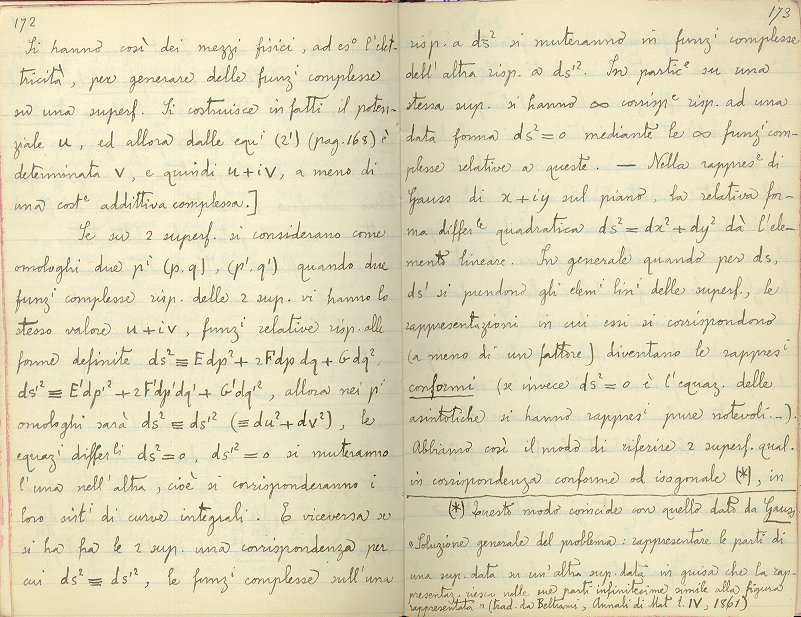 172
Si hanno così dei mezzi fisici, ad es.º l'elet-
tricità, per generare delle funzⁱ complesse
su una superf. Si costruisce infatti il poten-
ziale u, ed allora dalle equⁱ (2') (pag. 168) è
determinata v, e quindi u+iv, a meno di
una costᵉ addittiva complessa.]
Se su 2 superf. si considerano come
omologhi due pⁱ (p,q), (p',q') quando due
funzⁱ complesse risp. delle 2 sup. vi hanno lo
stesso valore u+iv, funzⁱ relative risp. alle
forme definite ds² ≡ Edp² + 2Fdp dq + Gdq²,
ds'² ≡ E'dp'² + 2F'dp'dq' + G'dq'², allora nei pⁱ
omologhi sarà ds² ≡ ds'² (≡ du² + dv²), le
equazⁱ differˡⁱ ds² = 0, ds'² = 0 si muteranno
l'una nell'altra, cioè si corrisponderanno i
loro sistⁱ di curve integrali. E viceversa se
si ha fra le 2 sup. una corrispondenza per
cui ds² ≡ ds'², le funzⁱ complesse sull'una
173
risp. a ds² si muteranno in funzⁱ complesse
dell'altra risp. a ds'². In particᵉ su una
stessa sup. si hanno ∞ corrispᵉ risp. ad una
data forma ds² = 0 mediante le ∞ funzⁱ com-
plesse relative a queste. — Nella rappresᵉ di
Gauss di x+iy sul piano, la relativa for-
ma differˡᵉ quadratica ds² = dx² + dy² dà l'ele-
mento lineare. In generale quando per ds,
ds' si prendono gli elemⁱ linⁱ delle superf., le
rappresentazioni in cui essi si corrispondono
(a meno di un fattore) diventano le rappresⁱ
conformi (se invece ds² = 0 è l'equaz. delle
asintotiche si hanno rappresⁱ pure notevoli...).
Abbiamo così il modo di riferire 2 superf. qual.
in corrispondenza conforme od isogonale (*), in
(*) Questo modo coincide con quello dato da Gauss
«Soluzione generale del problema: rappresentare le parti di
una sup. data su un'altra sup. data in guisa che la rap-
presentaz. riesca nelle sue parti infinitesime simile alla figura
rappresentata» (trad. da Beltrami, Annali di Mat t. IV, 1861)